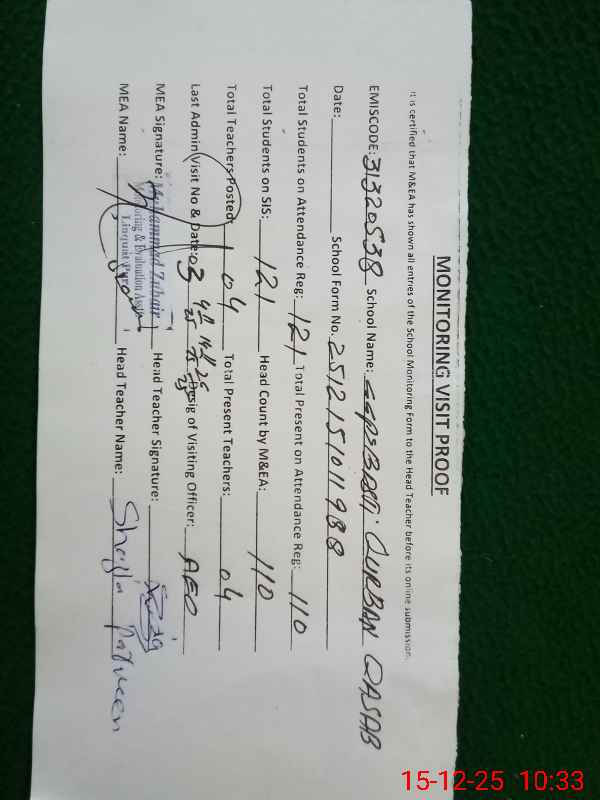 MONITORING VISIT PROOF
It is certified that M&EA has shown all entries of the School Monitoring Form to the Head Teacher before its online submission.
EMISCODE: 31320538 School Name: GGPS BASTI QURBAN QASAB
Date: School Form No. 251215101 1988
Total Students on Attendance Reg: 121 Total Present on Attendance Reg: 110
Total Students on SIS: 121 Head Count by M&EA: 110
Total Teachers Posted: 04 Total Present Teachers: 04
Last Admin Visit No & Date: 03 Desig of Visiting Officer: AEO
MEA Signature: Muhammad Zubair Head Teacher Signature:
Monitoring & Evaluation Assistt
MEA Name: Head Teacher Name: Shajla Parveen
15-12-25 10:33